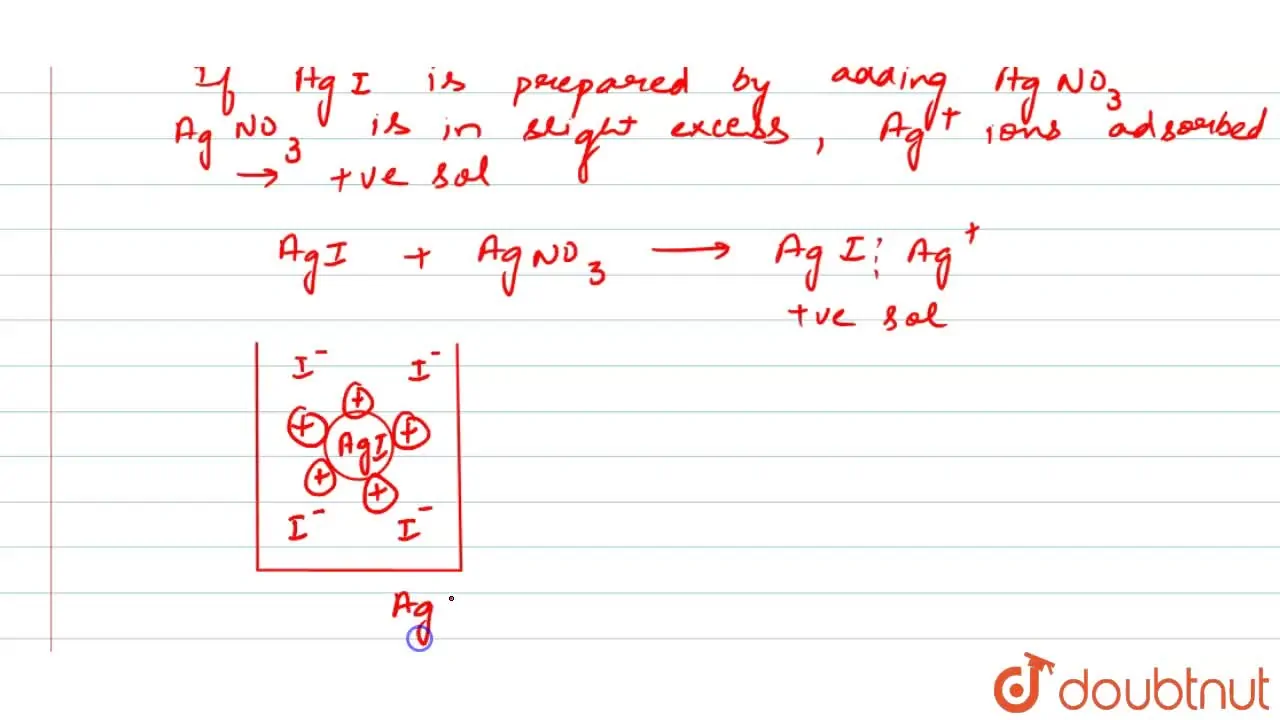 If AgI is prepared by adding AgNO₃
AgNO₃ is in slight excess, Ag⁺ ions adsorbed
→ +ve sol
AgI + AgNO₃ → AgI ⁞ Ag⁺
+ve sol
I⁻ I⁻
+
+ AgI +
+ +
I⁻ I⁻
Ag
doubtnut